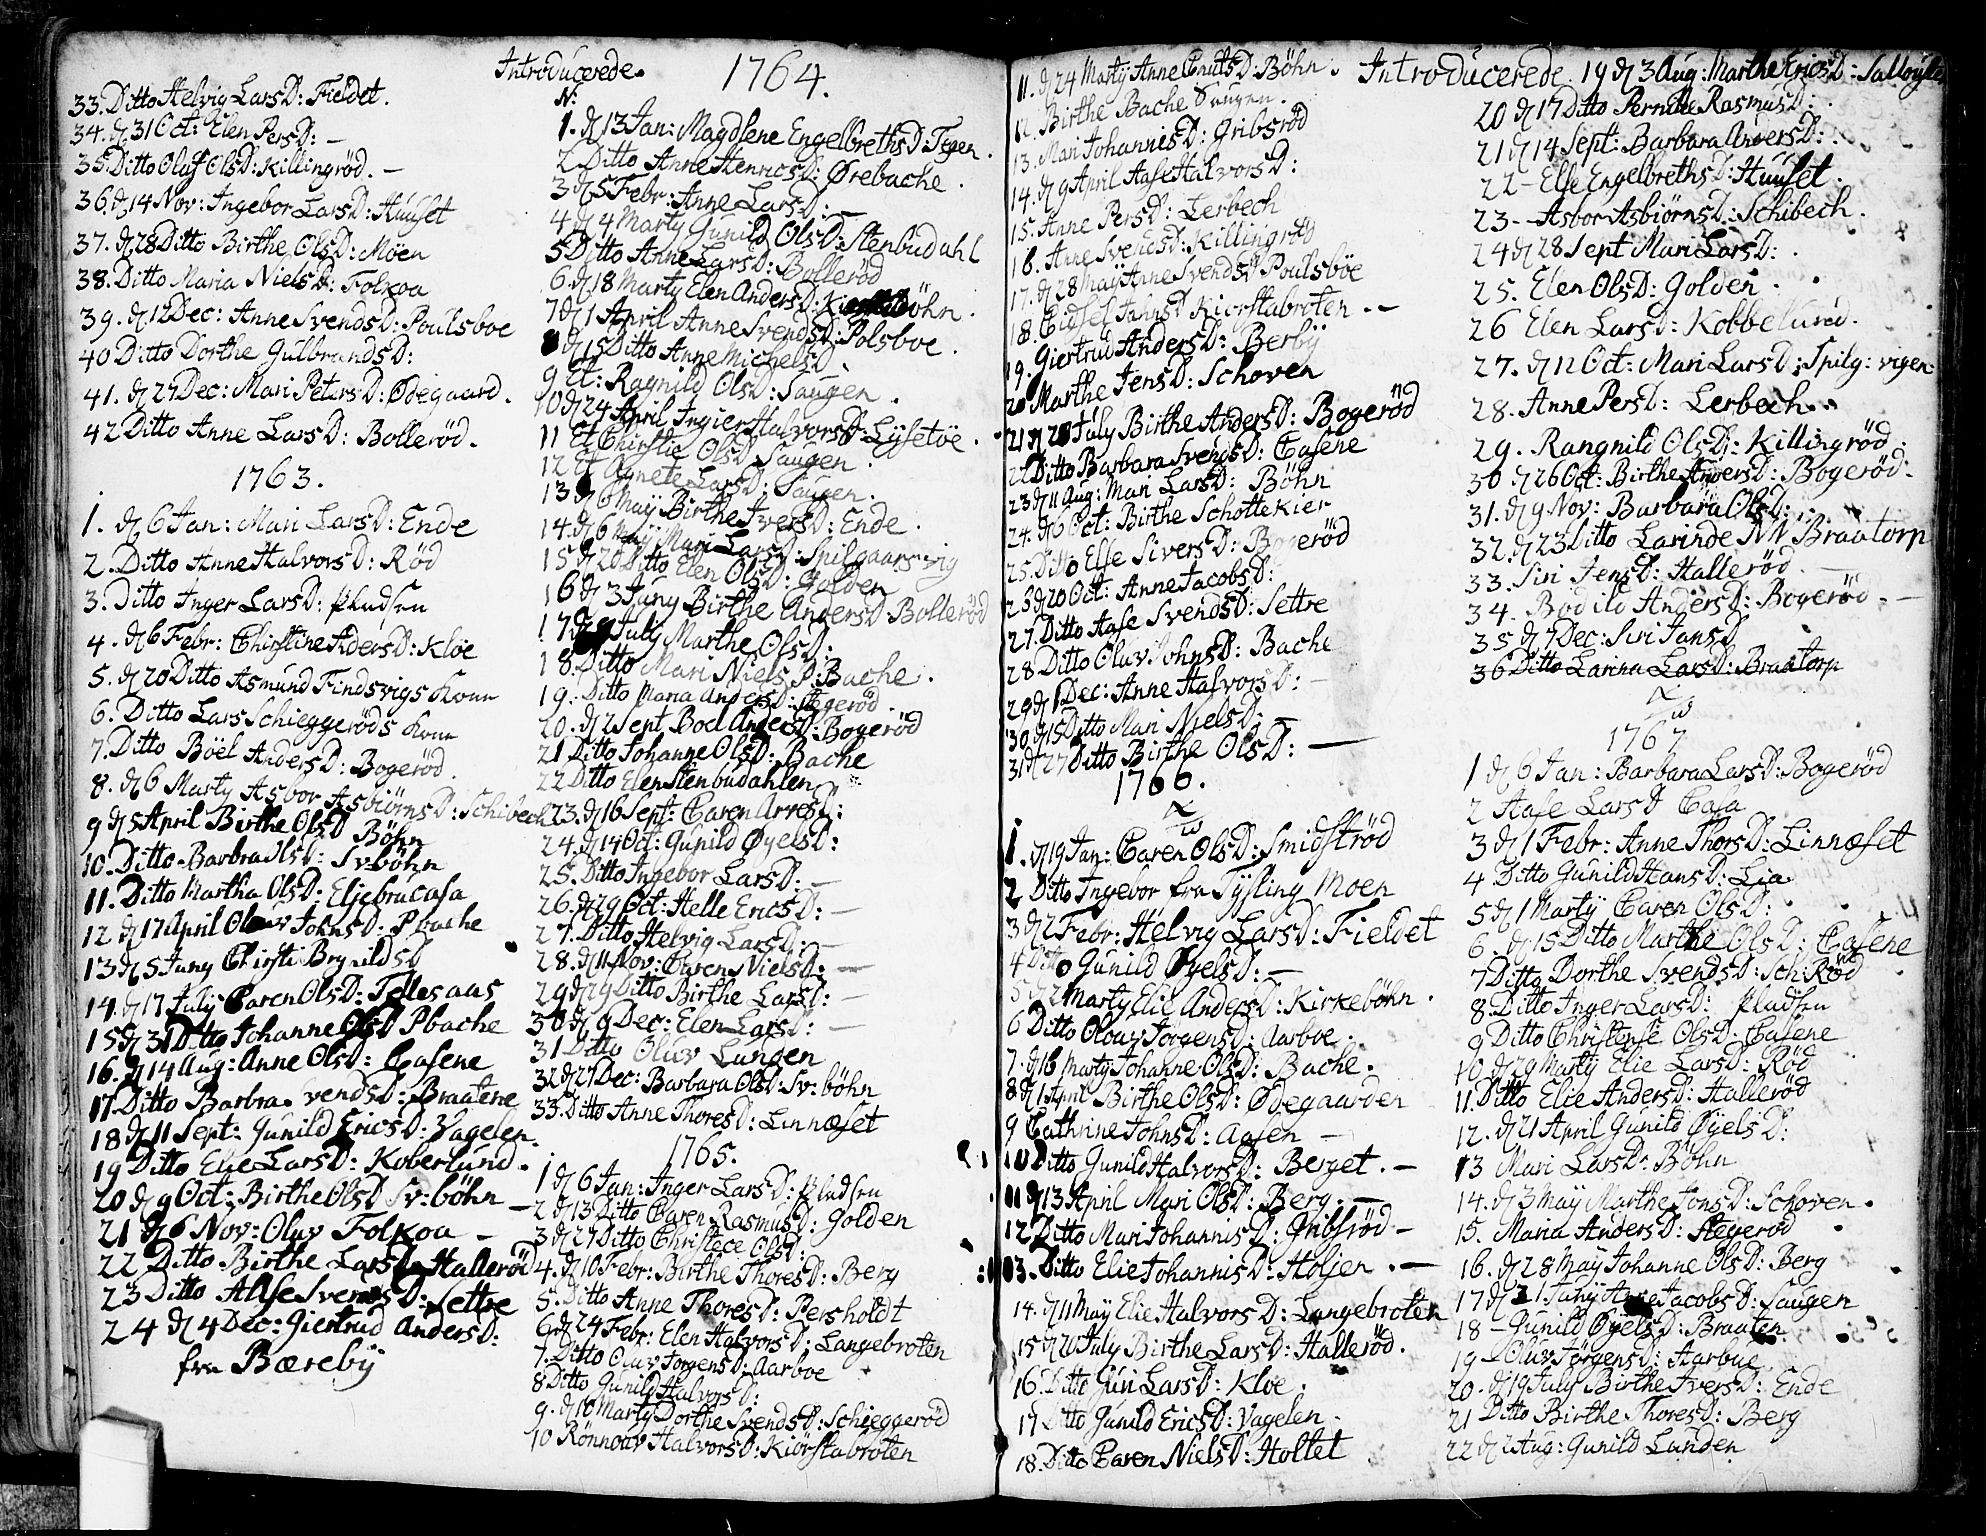 Introducerede.
33. Ditto Helvig LarsD: Fieldet.
34. d 31 Oct: Elen PersD: —
35 Ditto Oluf OlsD: Killingröd. —
36. d 14 Nov: Ingebor LarsD: Huuset
37. d 28 Ditto Birthe OlsD: Moen
38. Ditto Maria NielsD: Folkoa
39. d 12 Dec: Anne SvendsD: Poulsboe
40 Ditto Dorthe GulbrandsD:
41. d 27 Dec: Mari PetersD: Ødegaard.
42 Ditto Anne LarsD: Bolleröd.
1763.
1. d 6 Jan: Mari LarsD: Ende
2. Ditto Anne HalvorsD: Röd
3. Ditto Inger LarsD: Pludsen
4. d 6 Febr: Chirstine AdersD: Kloe
5. d 20 Ditto Asmund Findsvigs Kone
6. Ditto Lars Schieggeröds Kone
7. Ditto Böel AndersD: Bogeröd.
8. d 6 Marty Asbor AsbiörnsD: Schibech
9 d 5 April Birthe OlsD Böhn
10. Ditto Barbra OlsD: Sv böhn
11. Ditto Martha OlsD: Eljebracasa
12 d 17 April Oluv JohnsD: Pbache
13 d 5 Juny Chirsti BrynildsD
14. d 17 July Caren OlsD: Tellesaas
15 d 31 Ditto Johanne OlsD Pbache
16. d 14 Aug: Anne OlsD: Casene
17 Ditto Barbra SvendsD: Braatene
18 d 11 Sept: Gunild EricsD: Vagelen.
19 Ditto Elie LarsD: Koberlund.
20 d 9 Oct: Birthe OlsD Sv: böhn —
21 d 6 Nov: Oluv Folkoa —
22 Ditto Birthe LarsD: Halleröd
23 Ditto SvendsD: Settre
24 d 4 Dec: Giertrud AndersD:
fra Bæreby
1764.
N:
1. d 13 Jan: Magdlene EngelbrethsD: Tegen.
2 Ditto Anne HenricsD: Ørebache.
3 d 5 Febr: Anne LarsD: —
4 d 4 Marty Gunild OlsD: Stenbudahl
5 Ditto Anne LarsD: Bolleröd
6. d 18 Marty Elen AndersD: böhn.
7 d 1 April Anne SvendsD: Polsboe
8 d 15 Ditto Anne MichelsD
9 Et: Ragnild OlsD: Saugen.
10 d 24 April Ingier HalvorsD: Lysetöe.
11 Et Chirstie OlsD Saugen.
12 Et Agnete LarsD: Saugen.
13 d 6 May Birthe IversD: Ende.
14. d 6 May Mari LarsD: Spilgaarsvig
15 d 20 Ditto Elen OlsD: Golden
16 d 3 Juny Birthe AndersD Bolleröd
17 July Marthe OlsD:
18. Ditto Mari NielsD: Bache.
19. Ditto Maria AndersD: Hegeröd
20. d 2 Sept Boel AndersD: Bogeröd
21 Ditto Johanne OlsD: Bache
22 Ditto Elen Stenbudahlen
23. d 16 Sept: Caren ArvesD:
24. d 14 Oct: Gunild ØyelsD:
25. Ditto Ingebor LarsD: —
26. d 29 Oct: Helle EricsD: —
27. Ditto Helvig LarsD: —
28. d 11 Nov: Caren NielsD: —
29 d 29 Ditto Birthe LarsD: —
30 d 9 Dec: Elen LarsD: —
31 Ditto Oluv Lungen
32 d 27 Dec: Barbara OlsD: Sv: böhn
33. Ditto Anne ThoresD: Linnæset
1765.
1 d 6 Jan: Inger LarsD: Pludsen
2 d 13 Ditto Caren RasmusD: Golden
3 d 27 Ditto Christece OlsD:
4. d 10 Febr: Birthe ThoresD: Berg
5. Ditto Anne ThoresD: Persholdt
6 d 24 Febr: Elen HalvorsD: Langebroten
7. Ditto Oluv JorgensD: Aarboe
8 Ditto Gunild HalvorsD:
9. d 10 Marty Dorthe SvendsD: Schieggeröd
10 Rönnoav HalvorsD: Kiörstabroten
Introducerede.
11. d 24 Marty Anne CnutsD: Böhn.
12. Birthe Bache Saugen.
13. Mari JohannisD: Gribsröd
14. d 9 April Aase HalvorsD:
15. Anne PersD: Lerbech
16. Anne SvendsD: Killingröd
17. d 28 May Anne SvendsD Poulsböe
18. JahnsD Kiorstabroten. —
19. Giertrud AndersD: Berby
20 Marthe JensD: Schoven
21 d 28 July Birthe AndersD: Bogeröd
22 Ditto Barbara SvendsD: Casene
23 d 11 Aug: Mari LarsD: Böhn
24. d 6 Oct: Birthe Schottekier
25. Ditto Else SiversD: Bogeröd
26 d 20 Oct: Anne JacobsD:
27. Ditto Aase SvendsD: Settre
28 Ditto Oluv JohnsD: Bache
29 d 1 Dec: Anne HalvorsD: —
30 d 15 Ditto Mari NielsD: —
31 d 27 Ditto Birthe OlsD: —
1766.
1. d 19 Jan: Caren OlsD: Smidströd
2 Ditto Ingebor fra Tysling Moen
3 d 2 Febr: Helvig LarsD: Fieldet
4 Ditto Gunild ØyelsD: —
5 d 2 Marty Elie AndersD: Kirkebøhn.
6 Ditto Oloug JorgensD: Aarboe.
7. d 16 Marty Johanne OlsD: Bache.
8 d 1 April Birthe OlsD: Ødegaarden
9 Cathrine JohnsD: Aasen —
10 Ditto Gunild HalvorsD: Berget. —
11 d 13 April Mari OlsD: Berg. —
12 Ditto Mari JohannisD: Gribsröd —
13. Ditto Elie JohannisD: Holjen. —
14. d 11 May Elie HalvorsD: Langebroten
15 d 20 July Birthe LarsD: Halleröd.
16. Ditto Guri LarsD: Kloe.
17 Ditto Gunild EricsD: Vagelen.
18. Ditto Caren NielsD: Holtet
19 d 3 Aug: Marthe EricsD: Salloyle
20 d 17 Ditto Pernille RasmusD:
21 d 14 Sept: Barbara AndersD:
22 — Else EngelbrethsD: Huuset.
23 — Asbor AsbiörnsD: Schibech.
24 d 28 Sept Mari LarsD:
25. Elen OlsD: Golden
26 Elen LarsD: Kobbelund.
27. d 12 Oct: Mari LarsD: Spilg: vigen
28. Anne PersD: Lerbech.
29. Rangnild OlsD: Killingröd
30 d 26 Oct: Birthe AndersD: Bogeröd.
31. d 9 Nov: Barbara OlsD:
32. d 23 Ditto Larinde NN Braatorp
33. Siri JensD: Halleröd. —
34. Bodild AndersD: Bogeröd. —
35 d 7 Dec: Siri JansD
36 Ditto Larina LarsD: Braatorp
1767
1 d 6 Jan: Barbara LarsD: Bogeröd
2 Aase LarsD Casa
3 d 1 Febr: Anne ThorsD: Linnæset
4 Ditto Gunild HansD: Lia
5 d 1 Marty Caren OlsD:
6. d 15 Ditto Marthe OlsD: Casene
7 Ditto Dorthe SvendsD: Sch: Röd
8 Ditto Inger LarsD: Pludsen
9 Ditto Christense OlsD: Casene
10 d 29 Marty Elie LarsD: Röd
11. Ditto Elie AndersD: Halleröd
12. d 21 April Gunild ØyelsD:
13 Mari LarsD: Böhn
14. d 3 May Marthe JonsD: Schoven.
15. Maria AndersD: Hegeröd
16. d 28 May Johanne OlsD: Berg
17 d 21 Juny Anne JacobsD: Saugen
18 — Gunild ØyelsD: Braaten
19 — Oluv JørgensD: Aarbue
20. d 19 July Birthe IversD: Ende
21 Ditto Birthe ThoresD: Berg
22 d 2 Aug: Gunild Lunden